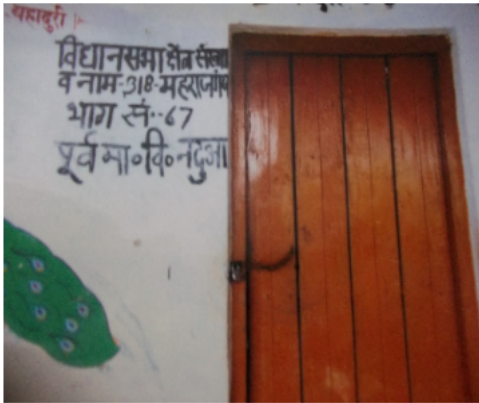 बहादुरी
विधानसभा क्षेत्र संख्या
व नाम-318-महराजगंज
भाग सं०-67
पूर्व मा० वि० नदुआ